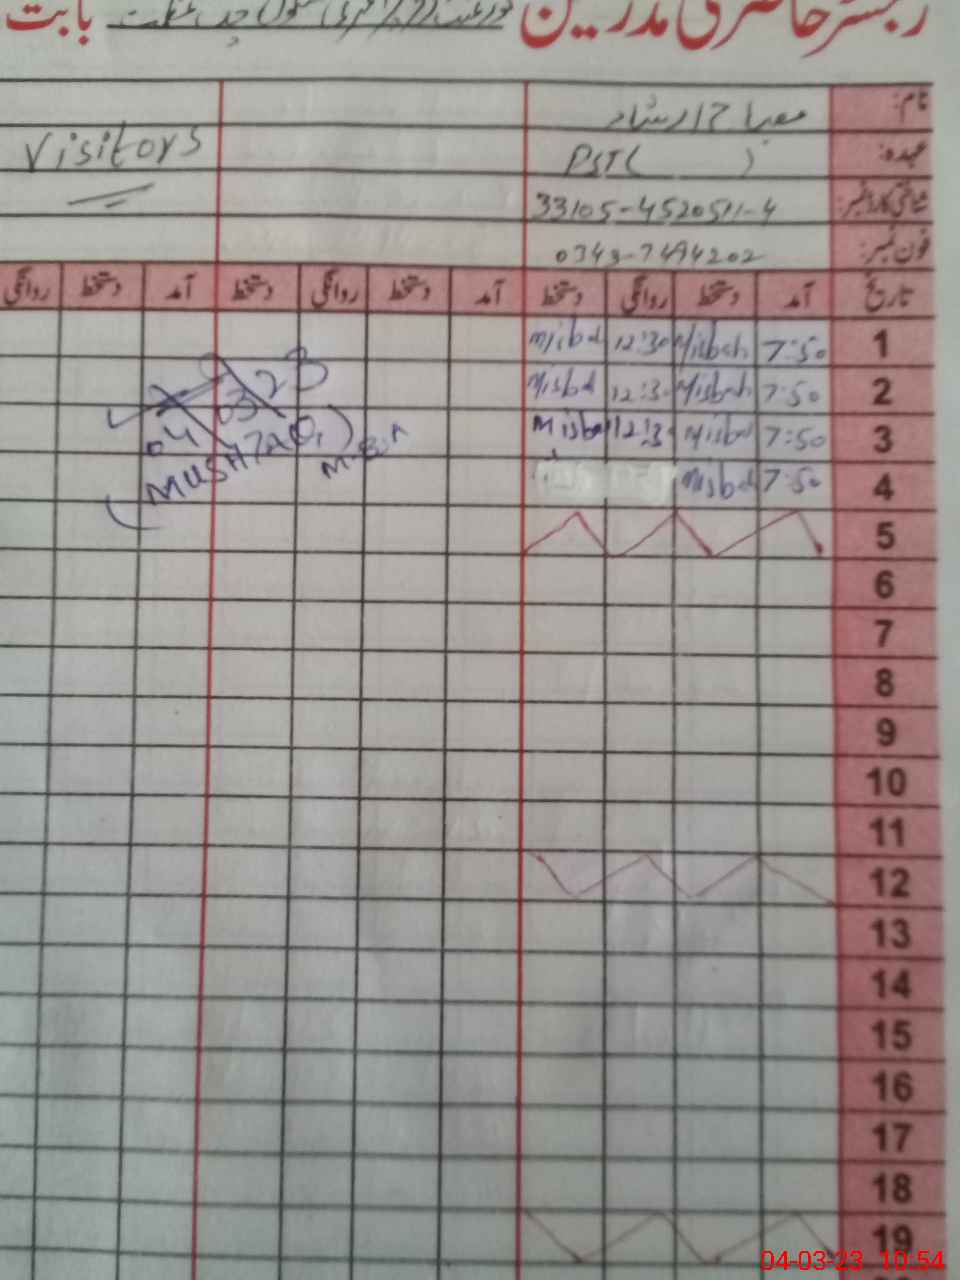 رجسٹر حاضری مدرسین گورنمنٹ بابت
نام: مصباح ارشاد
عہدہ: PST( ) Visitors
شناختی کارڈ نمبر: 33105-4520511-4
فون نمبر: 0343-7494202
تاریخ آمد دستخط روانگی دستخط آمد دستخط روانگی دستخط آمد دستخط روانگی
1 7:50 Misbah 12:30 Misbah
2 7:50 Misbah 12:30 Misbah
3 7:50 Misbah 12:30 Misbah
4 7:50 Misbah
04 03 23
(MUSHTAQ)
5
6
7
8
9
10
11
12
13
14
15
16
17
18
19
04-03-23 10:54